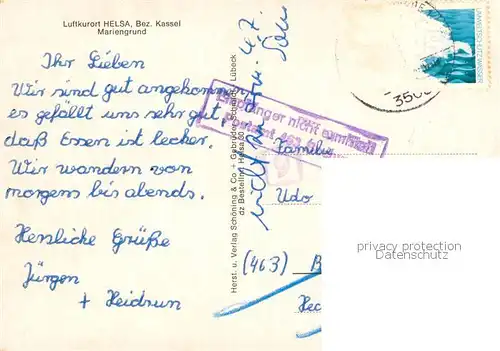 Luftkurort HELSA, Bez. Kassel
Mariengrund
Ihr Lieben
Wir sind gut angekommen,
es gefällt uns sehr gut,
daß Essen ist lecker.
Wir wandern von
morgens bis abends.
Herzliche Grüße
Jürgen
+ Heidrun
Herst. u. Verlag Schöning & Co + Gebrüder Schmidt, Lübeck
dz Bestellnr. Helsa
Empfänger nicht ermittelt
Postamt 463
Familie
Udo
(463) B
Hec
3500
LANDSTSCHUTZWASSER
privacy protection
Datenschutz